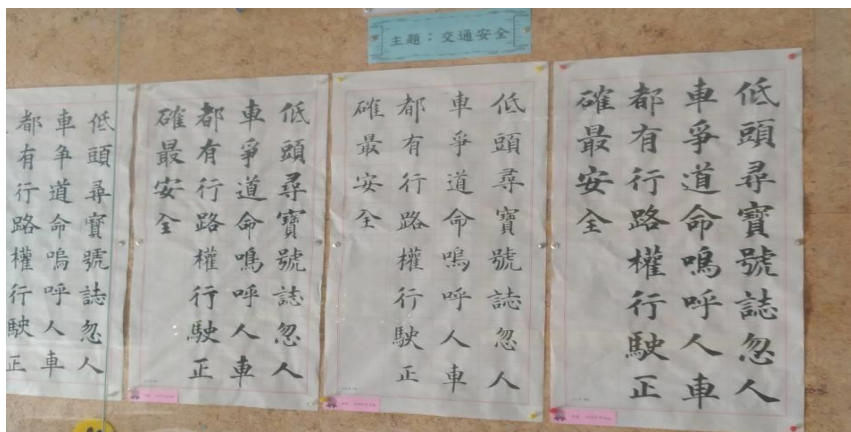 主題：交通安全
低頭尋寶號誌忽人
車爭道命鳴呼人車
都有行路權行駛正
確最安全
低頭尋寶號誌忽人
車爭道命鳴呼人車
都有行路權行駛正
確最安全
低頭尋寶號誌忽人
車爭道命鳴呼人車
都有行路權行駛正
確最安全
低頭尋寶號誌忽人
車争道命嗚呼人車
都有行路權行駛正